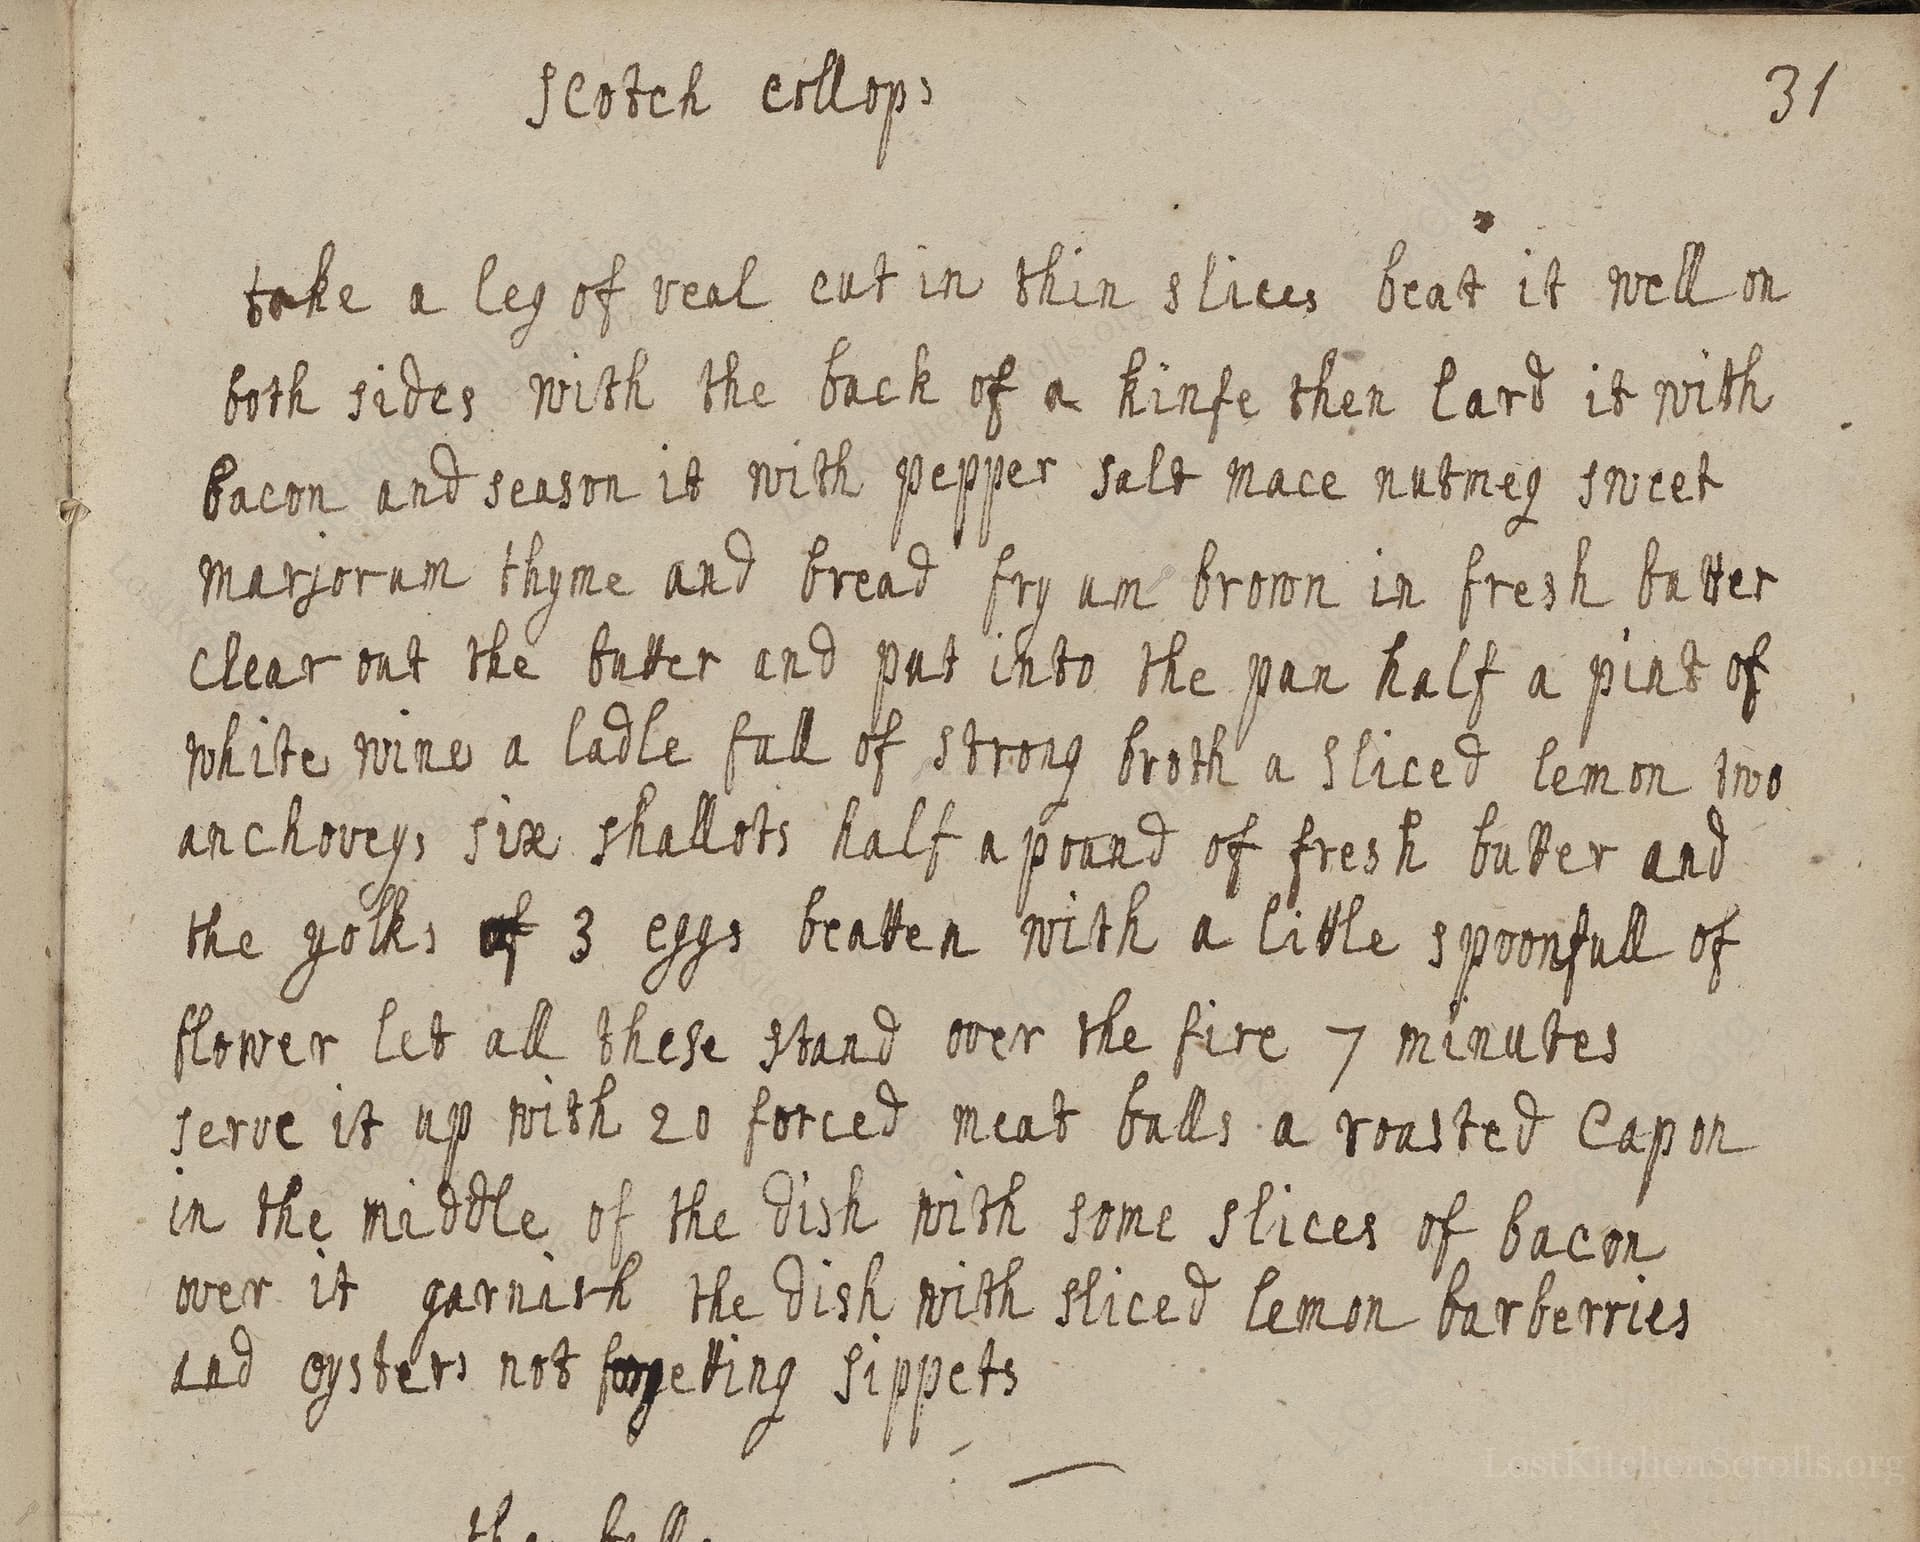 scotch collops
31
take a leg of veal cut in thin slices beat it well on
both sides with the back of a kinfe then lard it with
bacon and season it with pepper salt mace nutmeg sweet
marjorum thyme and bread fry um brown in fresh butter
clear out the butter and put into the pan half a pint of
white wine a ladle full of strong broth a sliced lemon two
anchoveys six shallots half a pound of fresh butter and
the yolks of 3 eggs beatten with a little spoonfull of
flower let all these stand over the fire 7 minutes
serve it up with 20 forced meat balls a roasted Capon
in the middle of the dish with some slices of bacon
over it garnish the dish with sliced lemon barberries
and oysters not forgetting sippets
LostKitchenScrolls.org